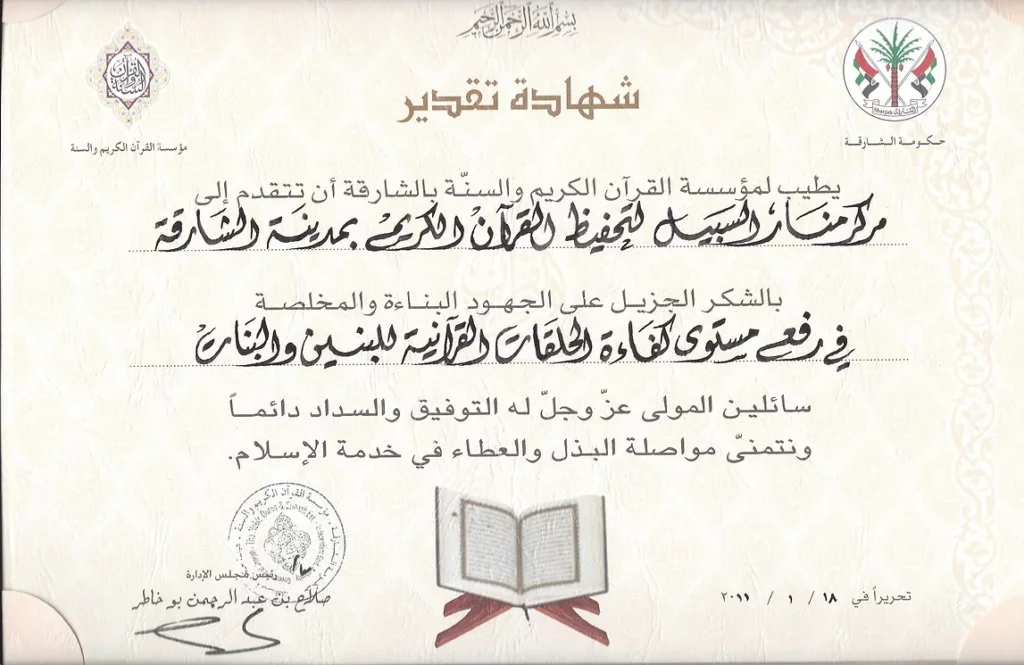 بسم الله الرحمن الرحيم
شهادة تقدير
حكومة الشارقة
القرآن والسنة
مؤسسة القرآن الكريم والسنة
يطيب لمؤسسة القرآن الكريم والسنّة بالشارقة أن تتقدم إلى
مركز منار السبيل لتحفيظ القرآن الكريم بمدينة الشارقة
بالشكر الجزيل على الجهود البناءة والمخلصة
في رفع مستوى كفاءة الحلقات القرآنية للبنين والبنات
سائلين المولى عزّ وجلّ له التوفيق والسداد دائماً
ونتمنىّ مواصلة البذل والعطاء في خدمة الإسلام.
مؤسسة القرآن الكريم والسنة
رئيس مجلس الإدارة
صلاح بن عبد الرحمن بو خاطر
تحريراً في ١٨ / ١ / ٢٠١١